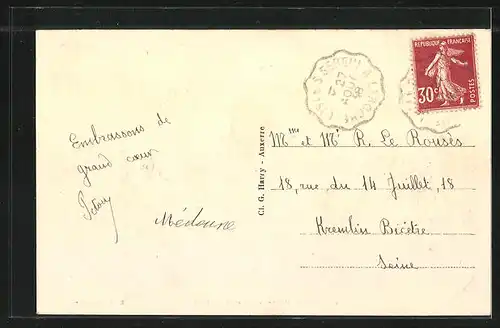 Embrassons de
grand cœur
Médoune
Cl. G. Harry - Auxerre
RÉPUBLIQUE FRANÇAISE
30c
POSTES
27
38
Mme et Mr R. Le Rousès
18, rue du 14 Juillet, 18
Kremlin Bicêtre
Seine